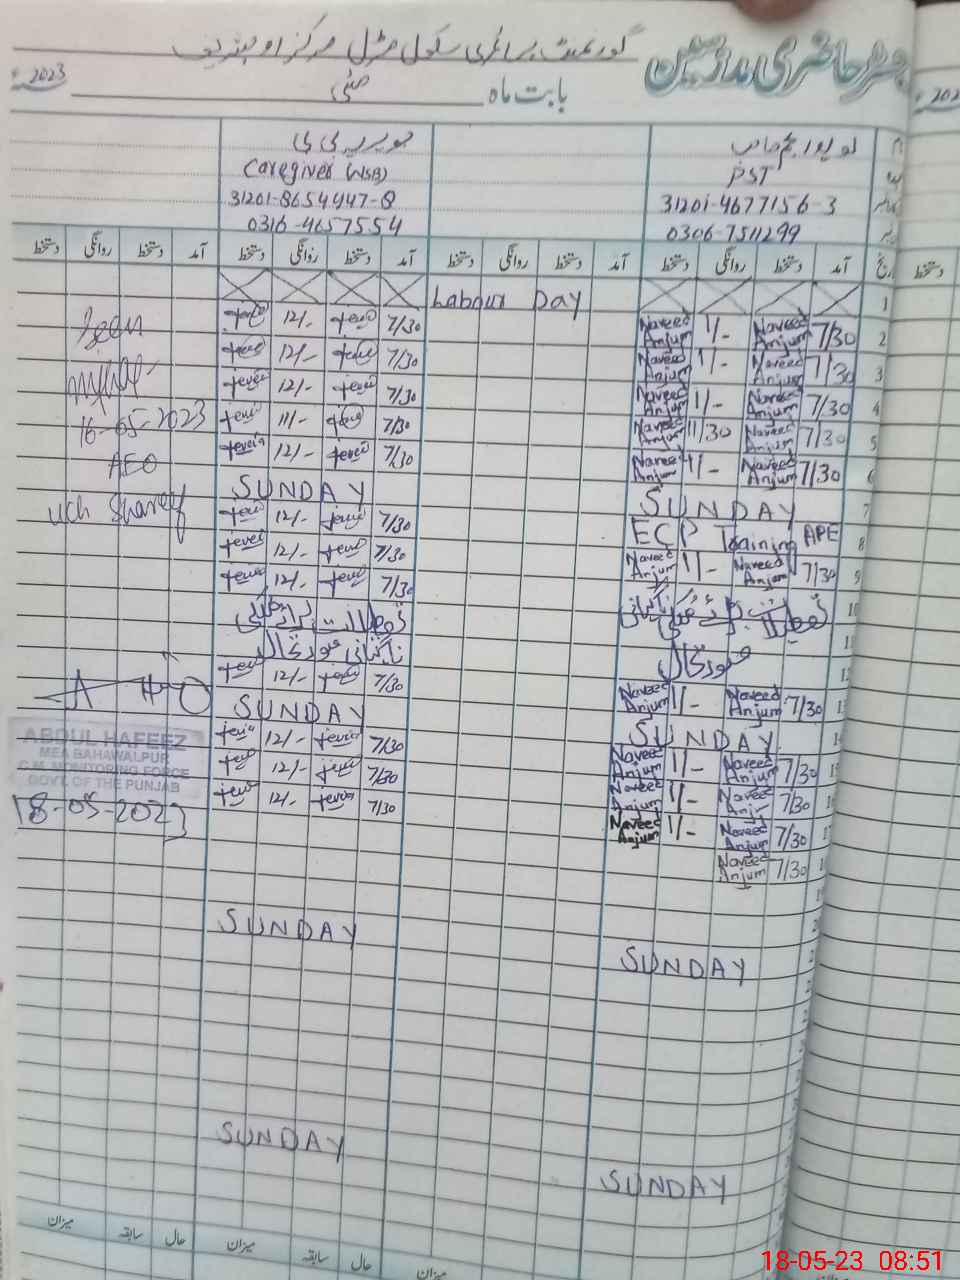 رجسٹر حاضری مدرسین گورنمنٹ پرائمری سکول مڈل مرکز اوچشریف
2023 بابت ماہ مئی
PST
Caregiver (WSB)
31201-4677156-3
31201-8654447-8
0306-7511299
0316-4657554
تاریخ آمد دستخط روانگی دستخط آمد دستخط روانگی دستخط آمد دستخط روانگی دستخط آمد دستخط روانگی دستخط
1 Labour Day
2 7/30 Naveed Anjum 1/- Naveed Anjum 7/30 12/-
3 7/30 Naveed Anjum 1/- Naveed Anjum 7/30 12/-
4 7/30 Naveed Anjum 1/- Naveed Anjum 7/30 12/-
5 7/30 Naveed Anjum 11/30 Naveed Anjum 7/30 11/-
6 7/30 Naveed Anjum 1/- Naveed Anjum 7/30 12/-
7 SUNDAY SUNDAY
8 ECP Training APE 7/30 12/-
9 7/30 Naveed Anjum 1/- Naveed Anjum 7/30 12/-
10 7/30 12/-
11
12 صورتحال 7/30 12/-
13 7/30 Naveed Anjum 1/- Naveed Anjum
14 SUNDAY SUNDAY
15 7/30 Naveed Anjum 1/- Naveed Anjum 7/30 12/-
16 7/30 Naveed Anjum 1/- Naveed Anjum 7/30 12/-
17 7/30 Naveed Anjum 1/- Naveed Anjum 7/30 12/-
7/30 Naveed Anjum
SUNDAY SUNDAY
SUNDAY SUNDAY
Seen
16-05-2023
AEO
Uch Shareef
ABDUL HAFEEZ
MEA BAHAWALPUR
C.M. MONITORING FORCE
GOVT. OF THE PUNJAB
18-05-2023
میزان حال سابقہ میزان حال سابقہ میزان
18-05-23 08:51